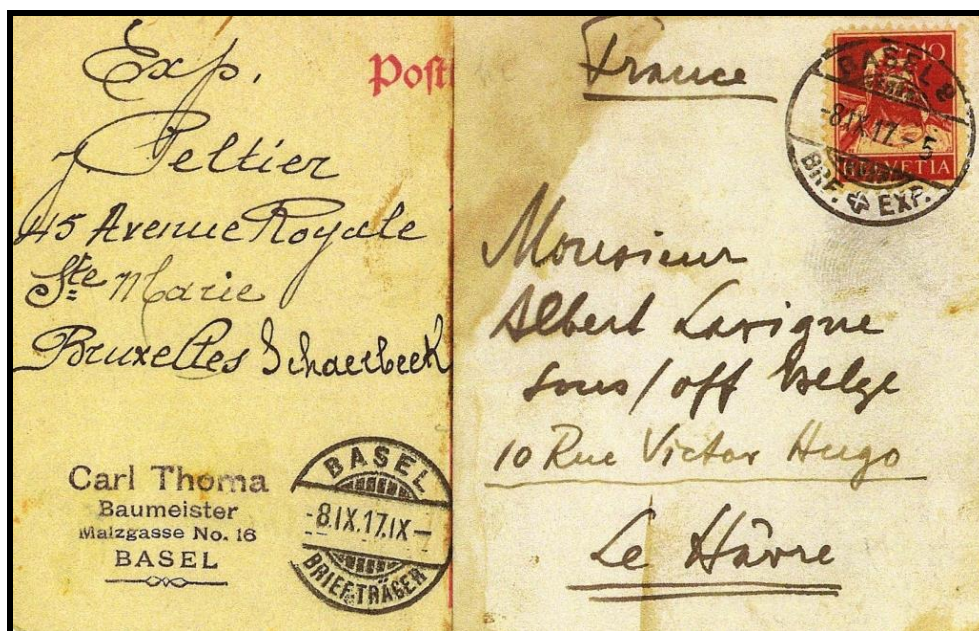 Exp.
J. Peltier
45 Avenue Royale
Ste Marie
Bruxelles Schaerbeek
Carl Thoma
Baumeister
Malzgasse No. 16
BASEL
BASEL
-8.IX.17.IX-
BRIEFTRÄGER
Post
France
BASEL 2
-8.IX.17.-5
BRF. EXP.
10
HELVETIA
Monsieur
Albert Lavigne
sous/off belge
10 Rue Victor Hugo
Le Hâvre